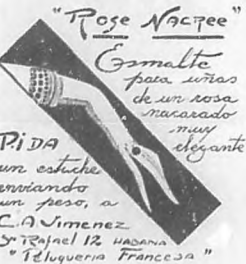 "Rose Nacree"
Esmalte
para uñas
de un rosa
nacarado
muy
elegante
PIDA
un estuche
enviando
un peso, a
C.A Jimenez
Sn Rafael 12 HABANA
"Peluqueria Francesa"